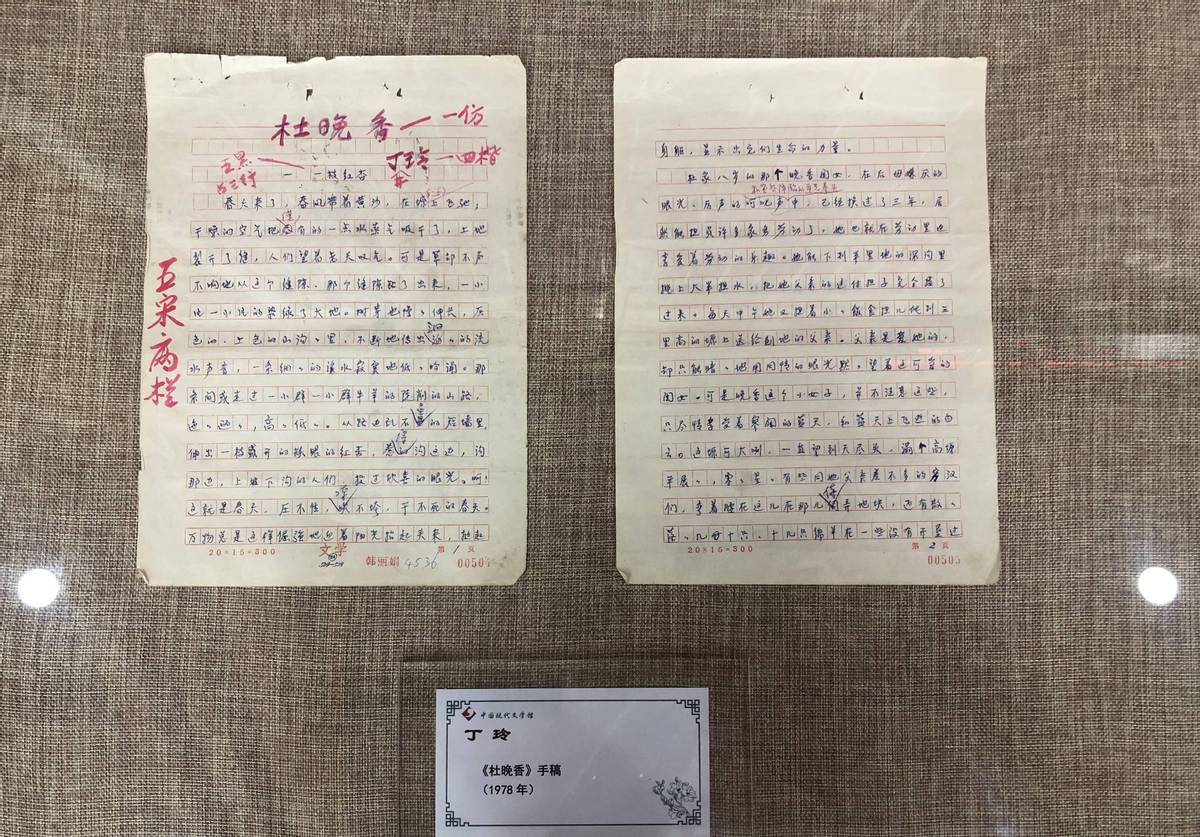 杜晚香 一仿
丁玲 一四楷
五黑
占三行
一 一枝红杏
春天来了,春风带着黄沙,在塬上飞驰;
干燥的空气把仅有的一点水蒸气吸干了,土地
裂开了缝,人们望着老天叹气。可是草却不声
不响地从这个缝隙、那个缝隙钻了出来,一小
片一小片的染绿了大地。树芽也慢慢伸长,灰
色的、土色的山沟沟里,不断地传出汩汩的流
水声音,一条细细的溪水寂寞地低低吟诵。那
条间或走过一小群一小群牛羊的陡削的山路,
迤迤逦逦,高高低低。从路边乱石垒的短墙里,
伸出一枝盛开的耀眼的红杏,惹得沟这边,沟
那边,上坡下沟的人们,投过欣喜的眼光。呵!
这就是春天,压不住,冻不垮,干不死的春天。
万物总是这样倔强地迎着阳光抬起头来,挺起
五宋·两栏
20×15=300
文学
第 1 页
韩丽娟 4536
身躯,显示出它们生命的力量。
杜家八岁的那个晚香闺女,在后母嫌厌的
眼光、厉声的呵叱声中,已经挨过了三年,居
然能担负许多家务劳动了,她也就在劳动里边
享受着劳动的乐趣。她能下到半里地的深沟里
挑上大半担水,把她父亲的这付担子完全接了
过来。每天中午她又担着小小饭食担儿爬到三
里高的塬上送给刨地的父亲。父亲是爱她的,
却只能暗暗地用同情的眼光默默望着这可爱的
闺女。可是晚香这个小女子,并不注意这些,
只尽情享受着寥阔的蓝天,和蓝天上飞逝的白
云。这塬可大咧,一直望到天尽头,满个高塬
平展展,零零星星有些同她父亲差不多的穷汉
们,弯着腰在这儿在那儿侍弄地块,还有散散
落落几母十六、十几只绵羊在一些没有开垦过
20×15=300
第 2 页
00505
中国现代文学馆
丁 玲
《杜晚香》手稿
(1978 年)